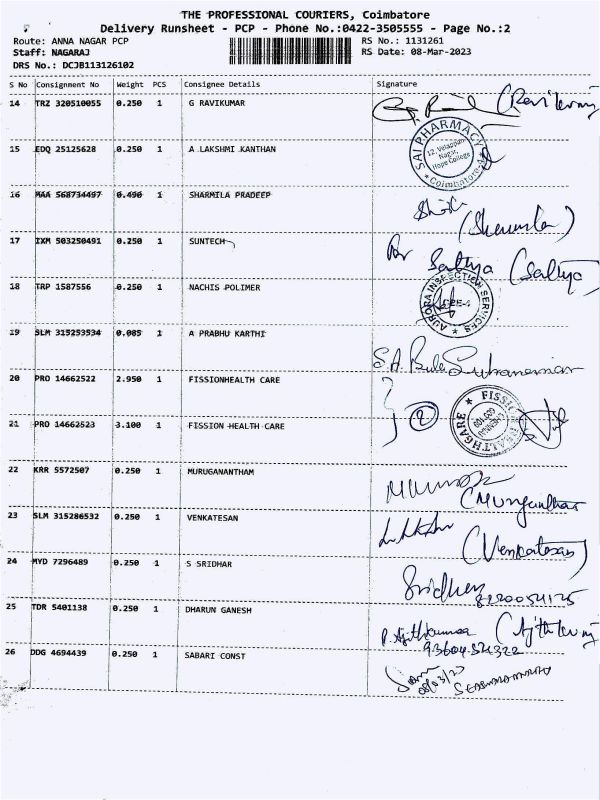 THE PROFESSIONAL COURIERS, Coimbatore
Delivery Runsheet - PCP - Phone No.:0422-3505555 - Page No.:2
Route: ANNA NAGAR PCP RS No.: 1131261
Staff: NAGARAJ RS Date: 08-Mar-2023
DRS No.: DCJB113126102
S No Consignment No Weight PCS Consignee Details Signature
14 TRZ 320510055 0.250 1 G RAVIKUMAR
15 EDQ 25125628 0.250 1 A LAKSHMI KANTHAN
SAI PHARMACY
12, Velappan
Nagar,
Hope College
Coimbatore-4
16 MAA 568734497 0.490 1 SHARMILA PRADEEP
(Sharmila)
17 IXM 503250491 0.250 1 SUNTECH
Sathya (Sathya)
18 TRP 1587556 0.250 1 NACHIS POLIMER
AURORA INSPECTION SERVICES
CBE-4
19 SLM 315253534 0.085 1 A PRABHU KARTHI
20 PRO 14662522 2.950 1 FISSIONHEALTH CARE
2
21 PRO 14662523 3.100 1 FISSION HEALTH CARE
FISSION HEALTHCARE
22 KRR 5572507 0.250 1 MURUGANANTHAM
23 SLM 315286532 0.250 1 VENKATESAN
(Venkatesan)
24 MYD 7296489 0.250 1 S SRIDHAR
Sridhar
8220054125
25 TDR 5401138 0.250 1 DHARUN GANESH
P. Ajithkumar (Ajithkumar)
26 DDG 4694439 0.250 1 SABARI CONST
08/03/23